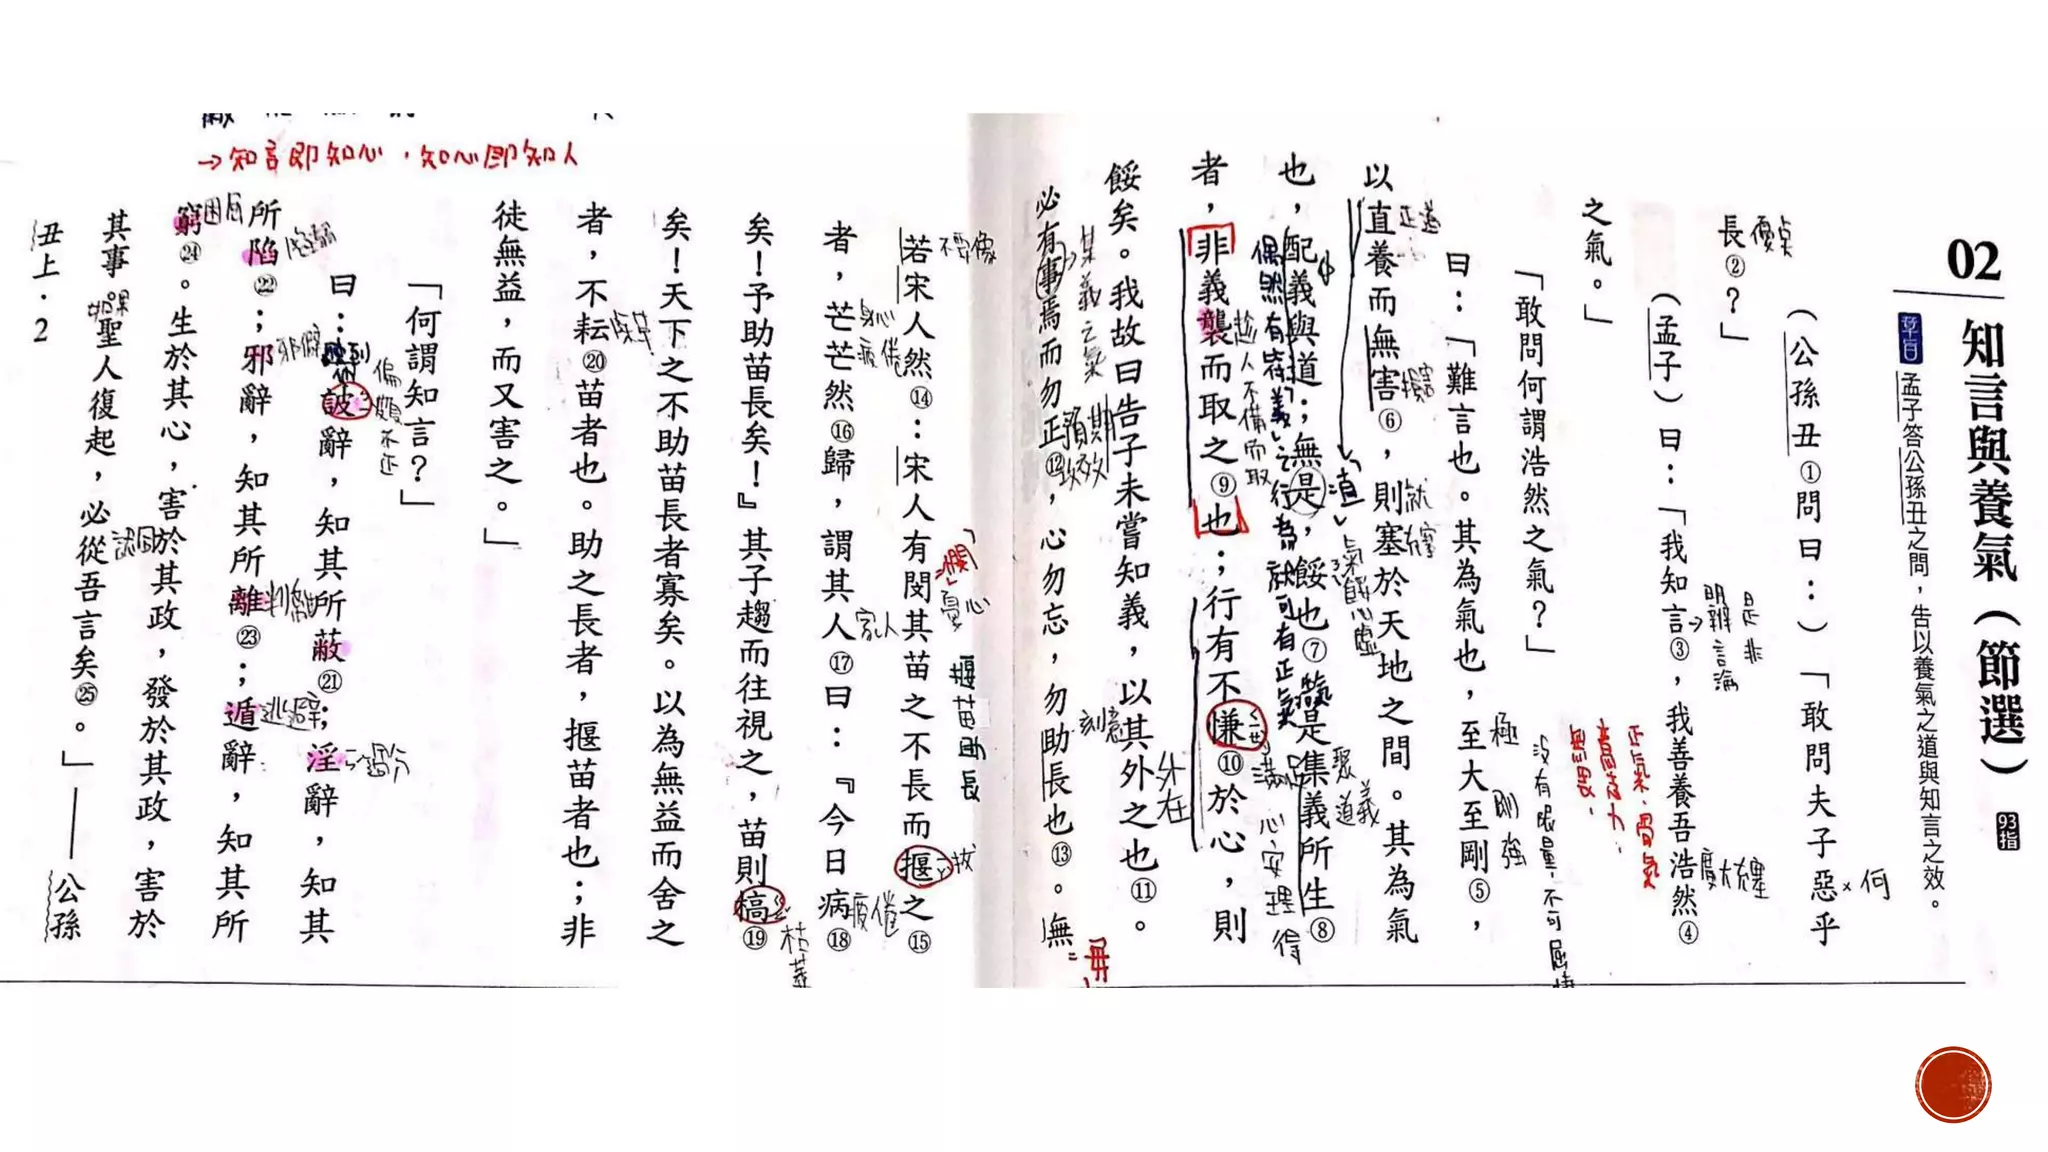 02 知言與養氣（節選） 93指
章旨 孟子答公孫丑之問，告以養氣之道與知言之效。
（公孫丑①問曰：）「敢問夫子惡乎
何
長②？」
優點
（孟子）曰：「我知言③，我善養吾浩然④
明辨言論
是非
廣大
正氣、骨氣
之氣。」
「敢問何謂浩然之氣？」
沒有限量，不可屈
曰：「難言也。其為氣也，至大至剛⑤，
極
剛強
以直養而無害⑥，則塞於天地之間。其為氣
正道
損害
就
也，配義與道；無是，餒也⑦。是集義所生⑧
直
氣餒心虛
聚
道義
者，非義襲而取之⑨也；行有不慊⑩於心，則
偶然有
行為就可有正氣
趁人不備而取
滿足
心安理得
餒矣。我故曰告子未嘗知義，以其外之也⑪。
外在
必有事焉而勿正⑫，心勿忘，勿助長也⑬。無
集義之氣
預期效
刻意
=毋
若宋人然⑭：宋人有閔其苗之不長而揠之⑮
不要像
=憫
憂心
拔
揠苗助長
者，芒芒然⑯歸，謂其人⑰曰：『今日病⑱
身心疲倦
家人
疲倦
矣！予助苗長矣！』其子趨而往視之，苗則槁⑲
枯萎
矣！天下之不助苗長者寡矣。以為無益而舍之
者，不耘⑳苗者也。助之長者，揠苗者也；非
除草
徒無益，而又害之。」
「何謂知言？」
曰：「詖辭，知其所蔽㉑；淫辭，知其
偏頗不正
過分
所陷㉒；邪辭，知其所離㉓；遁辭，知其所
陷溺
邪僻
逃避
窮㉔。生於其心，害於其政，發於其政，害於
困屈
其事。聖人復起，必從吾言矣㉕。」——公孫
如果
認同
丑上．2
→知言即知心，知心即知人